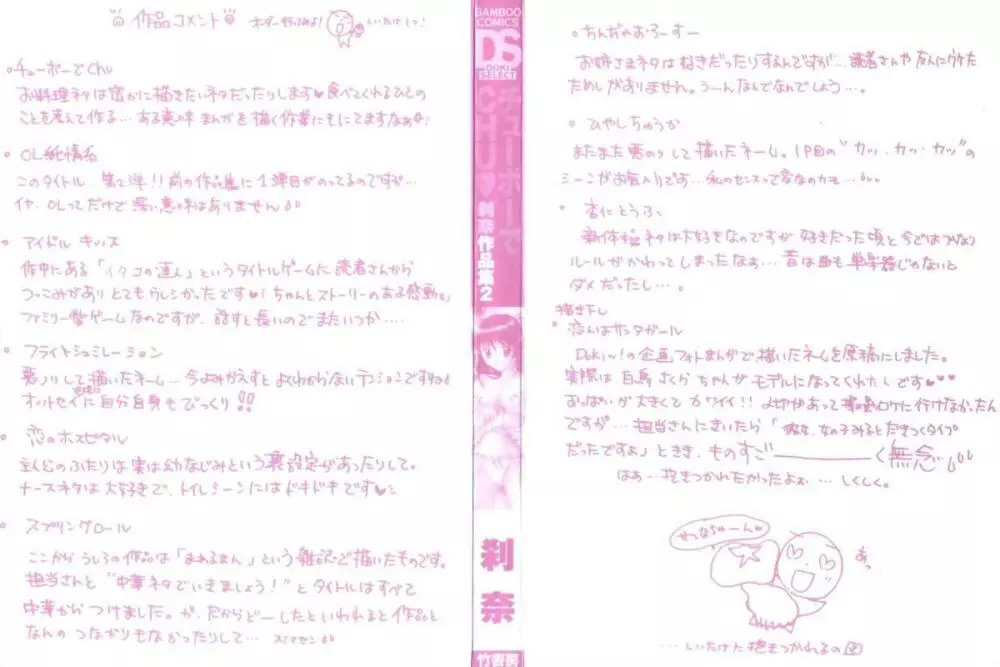 作品コメント
チューボーでChu
お料理ネタは密かに描きたいネタだったりします♥食べてくれるひとの
ことを考えて作る…ある意味まんがを描く作業にもにてますなぁ
OL純情系
このタイトル 第2弾!!前の作品集に1弾目がのってるのですが…
イヤ、OLってだけで深い意味はありません
アイドル キッス
作中にある「イタコの達人」というタイトルゲームに読者さんから
つっこみがあり とてもウレシかったです♥ちゃんとストーリーのある感動
ファミリー型ゲームなのですが、話すと長いのでまたいつか…
フライトシュミレーション
悪ノリして描いたネーム…今よみかえすと よくわからないテンションですね
オットセイに自分自身もびっくり!!
恋のホスピタル
主人公のふたりは実は幼なじみという裏設定があったりして。
ナースネタは大好きで、トイレシーンにはドキドキです♥
スプリングロール
ここから うしろの作品は「まぁるまん」という雑誌で描いたものです。
担当さんと"中華ネタでいきましょう!"と タイトルはすべて
中華から つけました。が、だからどーしたといわれると 作品と
なんの つながりもなかったりして… スミマセン
BAMBOO
COMICS
DS
DOKI
SELECT
チューボーで
CHU♥
刹奈作品集2
刹奈
竹書房
ちんぢゃおろーすー
お姉さまネタはねきだったりするんですが…読者さんや友人にウケた
ためしがありません。うーん なんでなんでしょう…。
ひやしちゅうか
またまた悪のりして描いたネーム。1P目の"カッ・カッ・カッ"の
シーンがお気入りです…私のセンスって変なのカモ…
杏仁とうふ
新体操ネタは大好きなのですが 好きだった頃と今ではかなり
ルールがかわってしまったなぁ…昔は曲も単楽器じゃないと
ダメだったし…。
描き下し
恋人はサンタガール
Doki!の企画フォトまんがで描いたネームを原稿にしました。
実際は 白鳥さくら ちゃんが モデルになってくれたんです♥♥♥
おっぱいが大きくて カワイイ!!〆切があって撮影ロケに行けなかったん
ですが…担当さんにきいたら「彼女、女の子みるとだきつくタイプ
だったですよ」ときき、ものすごーーーく無念
はぁ…抱きつかれたかったよぉ…しくしく。
せつなちゃーん♥
あっ
…しいたけに抱きつかれるの図